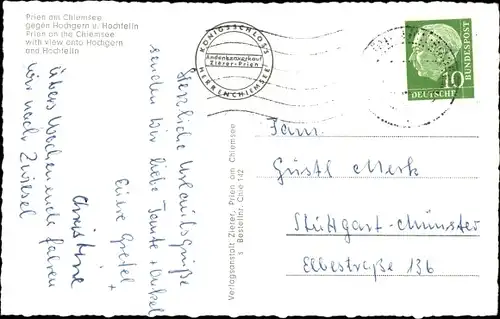 Prien am Chiemsee
gegen Hochgern u. Hochfelln
Prien on the Chiemsee
with view onto Hochgern
and Hochfelln
KÖNIGSSCHLOSS
Andenkenverkauf
Zierer-Prien
HERRENCHIEMSEE
10
DEUTSCHE
BUNDESPOST
Herzliche Urlaubsgrüße
senden Dir liebe Tante + Onkel
Eure Gretel
+
Christine
Übers Wochenende fahren
wir nach Zwiesel
Verlagsanstalt Zierer, Prien am Chiemsee
s Bestellnr. Chie 142
Fam.
Gustl Merk
Stuttgart-Münster
Elbestraße 136